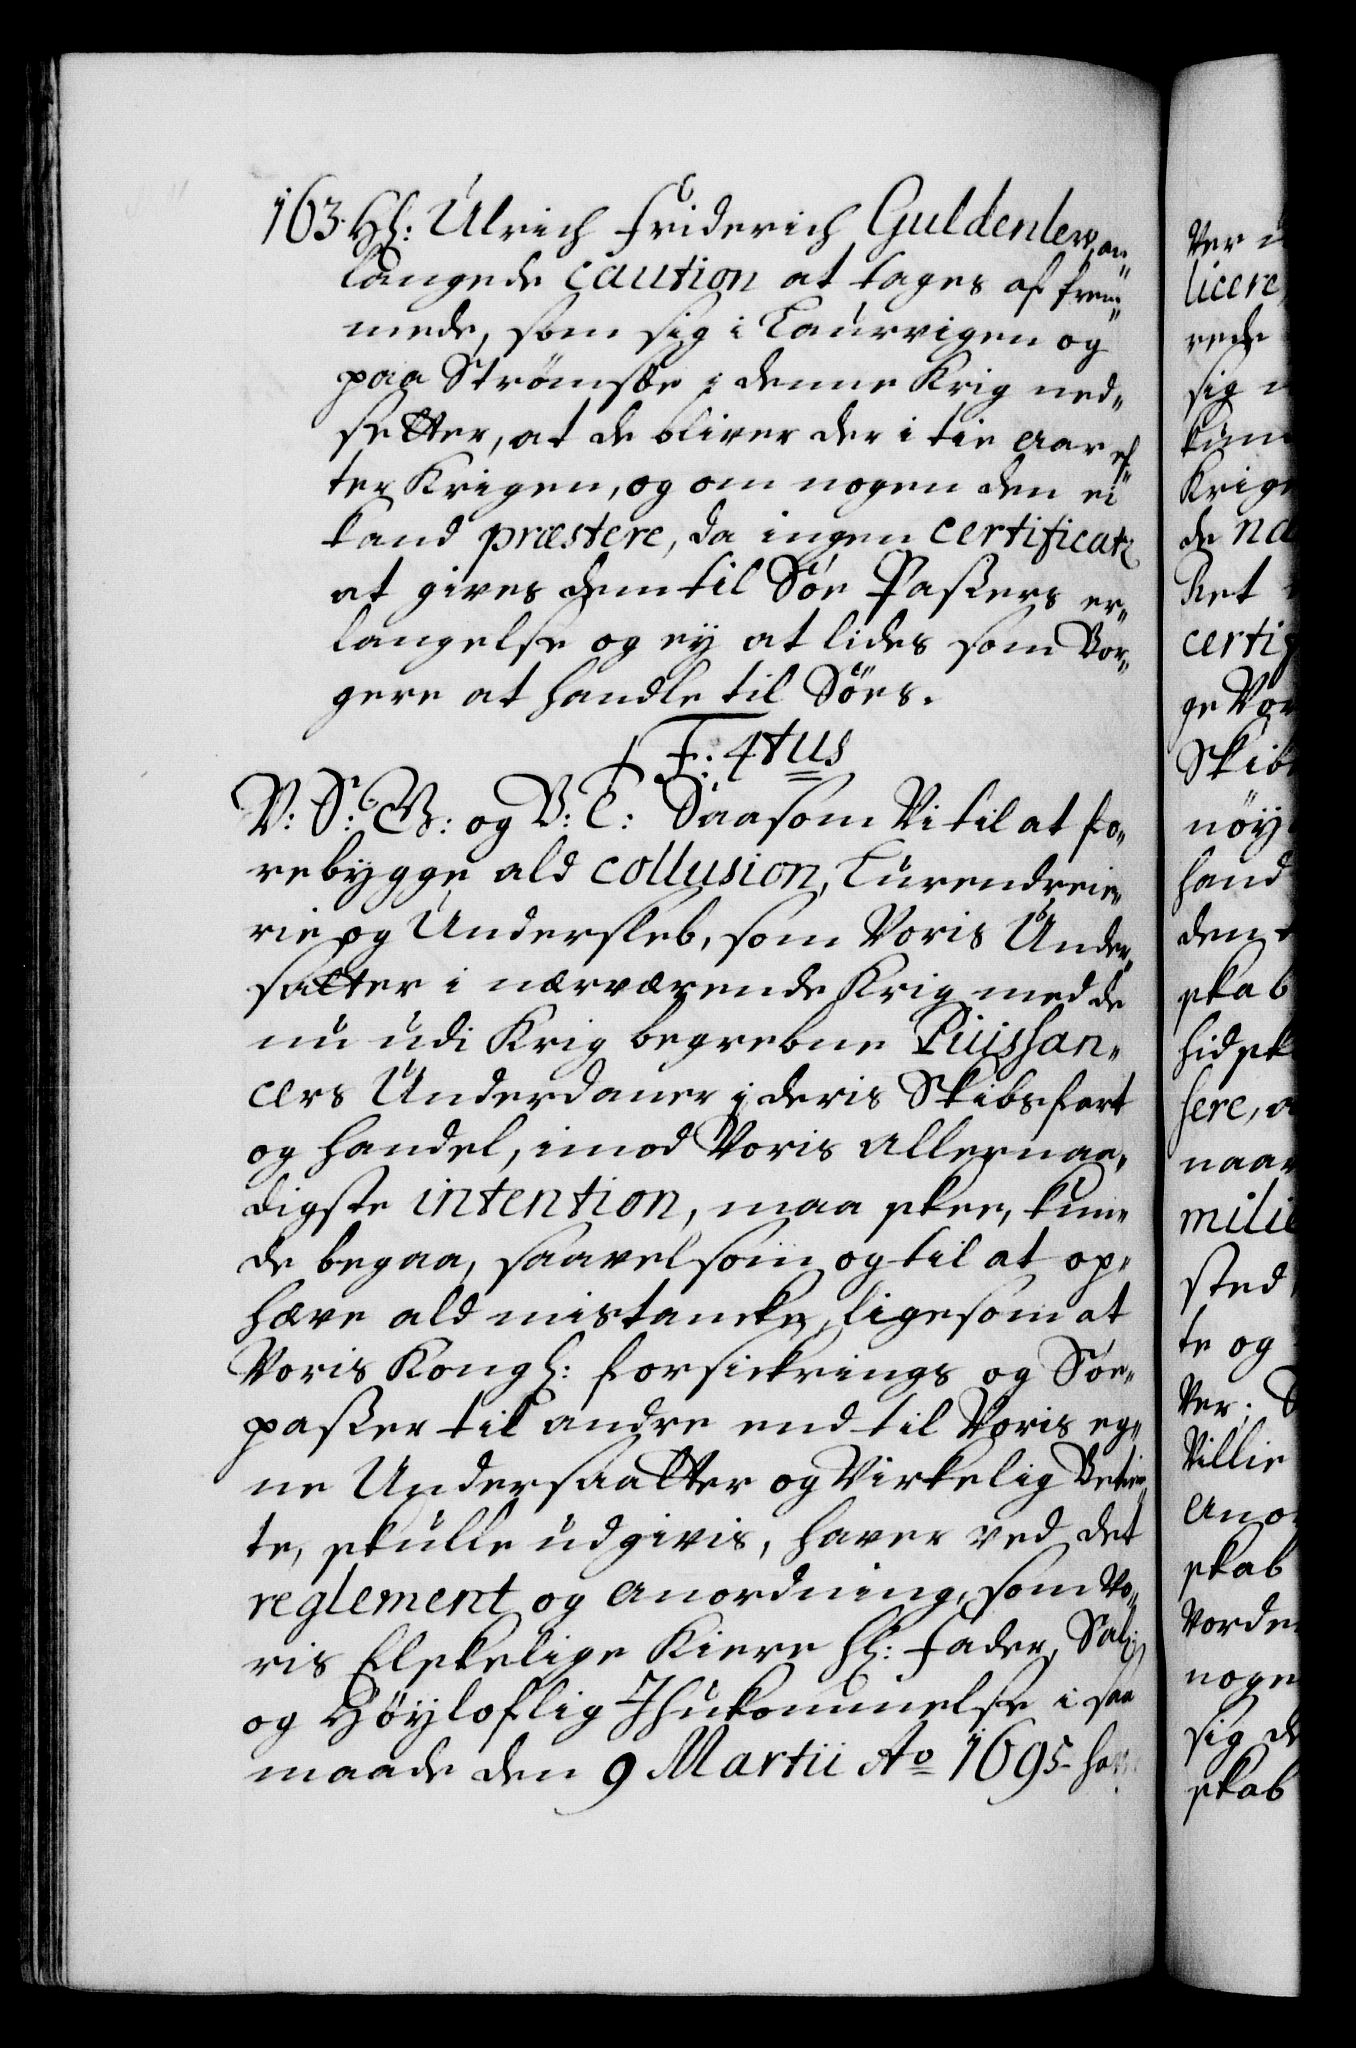 163. Hl: Ulrich Friderich Guldenlew, an-
langende caution at tages af frem-
mede, som sig i Laurvigen og
paa Strömsöe i denne Krig ned-
setter, at de bliver der i tie aar ef-
ter Krigen, og om nogen den ei
kand præstere, da ingen certificat
at gives dem til Söe Passers er-
langelse og ey at lides som Bor-
gere at handle til Söes.
F: 4tus
V: S: G: og V: T: Saasom Vi til at fo-
rebygge ald collusion, Lurendreie-
rie og Undersleb, som Voris Under-
satter i nærværende Krig med de
nu udi Krig begrebne Puissan-
cers Underdaner i deris Skibsfart
og handel, imod Voris allernaa-
digste intention, maa skee, kun-
de begaa, saavelsom og til at op-
hæve ald mistancke, ligesom at
Voris Kongl: forsickrings og Söe-
passer til andre end til Voris eg-
ne Undersaatter og Virkelig Betien-
te, skulle udgivis, haver ved det
reglement og anordning, som Vo-
ris Elskelige Kiere Hl: Fader, Sal:
og Höyloflig Ihukommelse i saa
maade den 9 Martii Ao 1695 har
Ver
licere
rede
sig
kun
Krige
de na
Ret
certif
ge Vor
Skib
nöy
hand
den
skab
hidsk
sere, a
naar
milie
sted
te og
Ver; S
Villie
ano
skab
Vorde
noge
sig de
skab